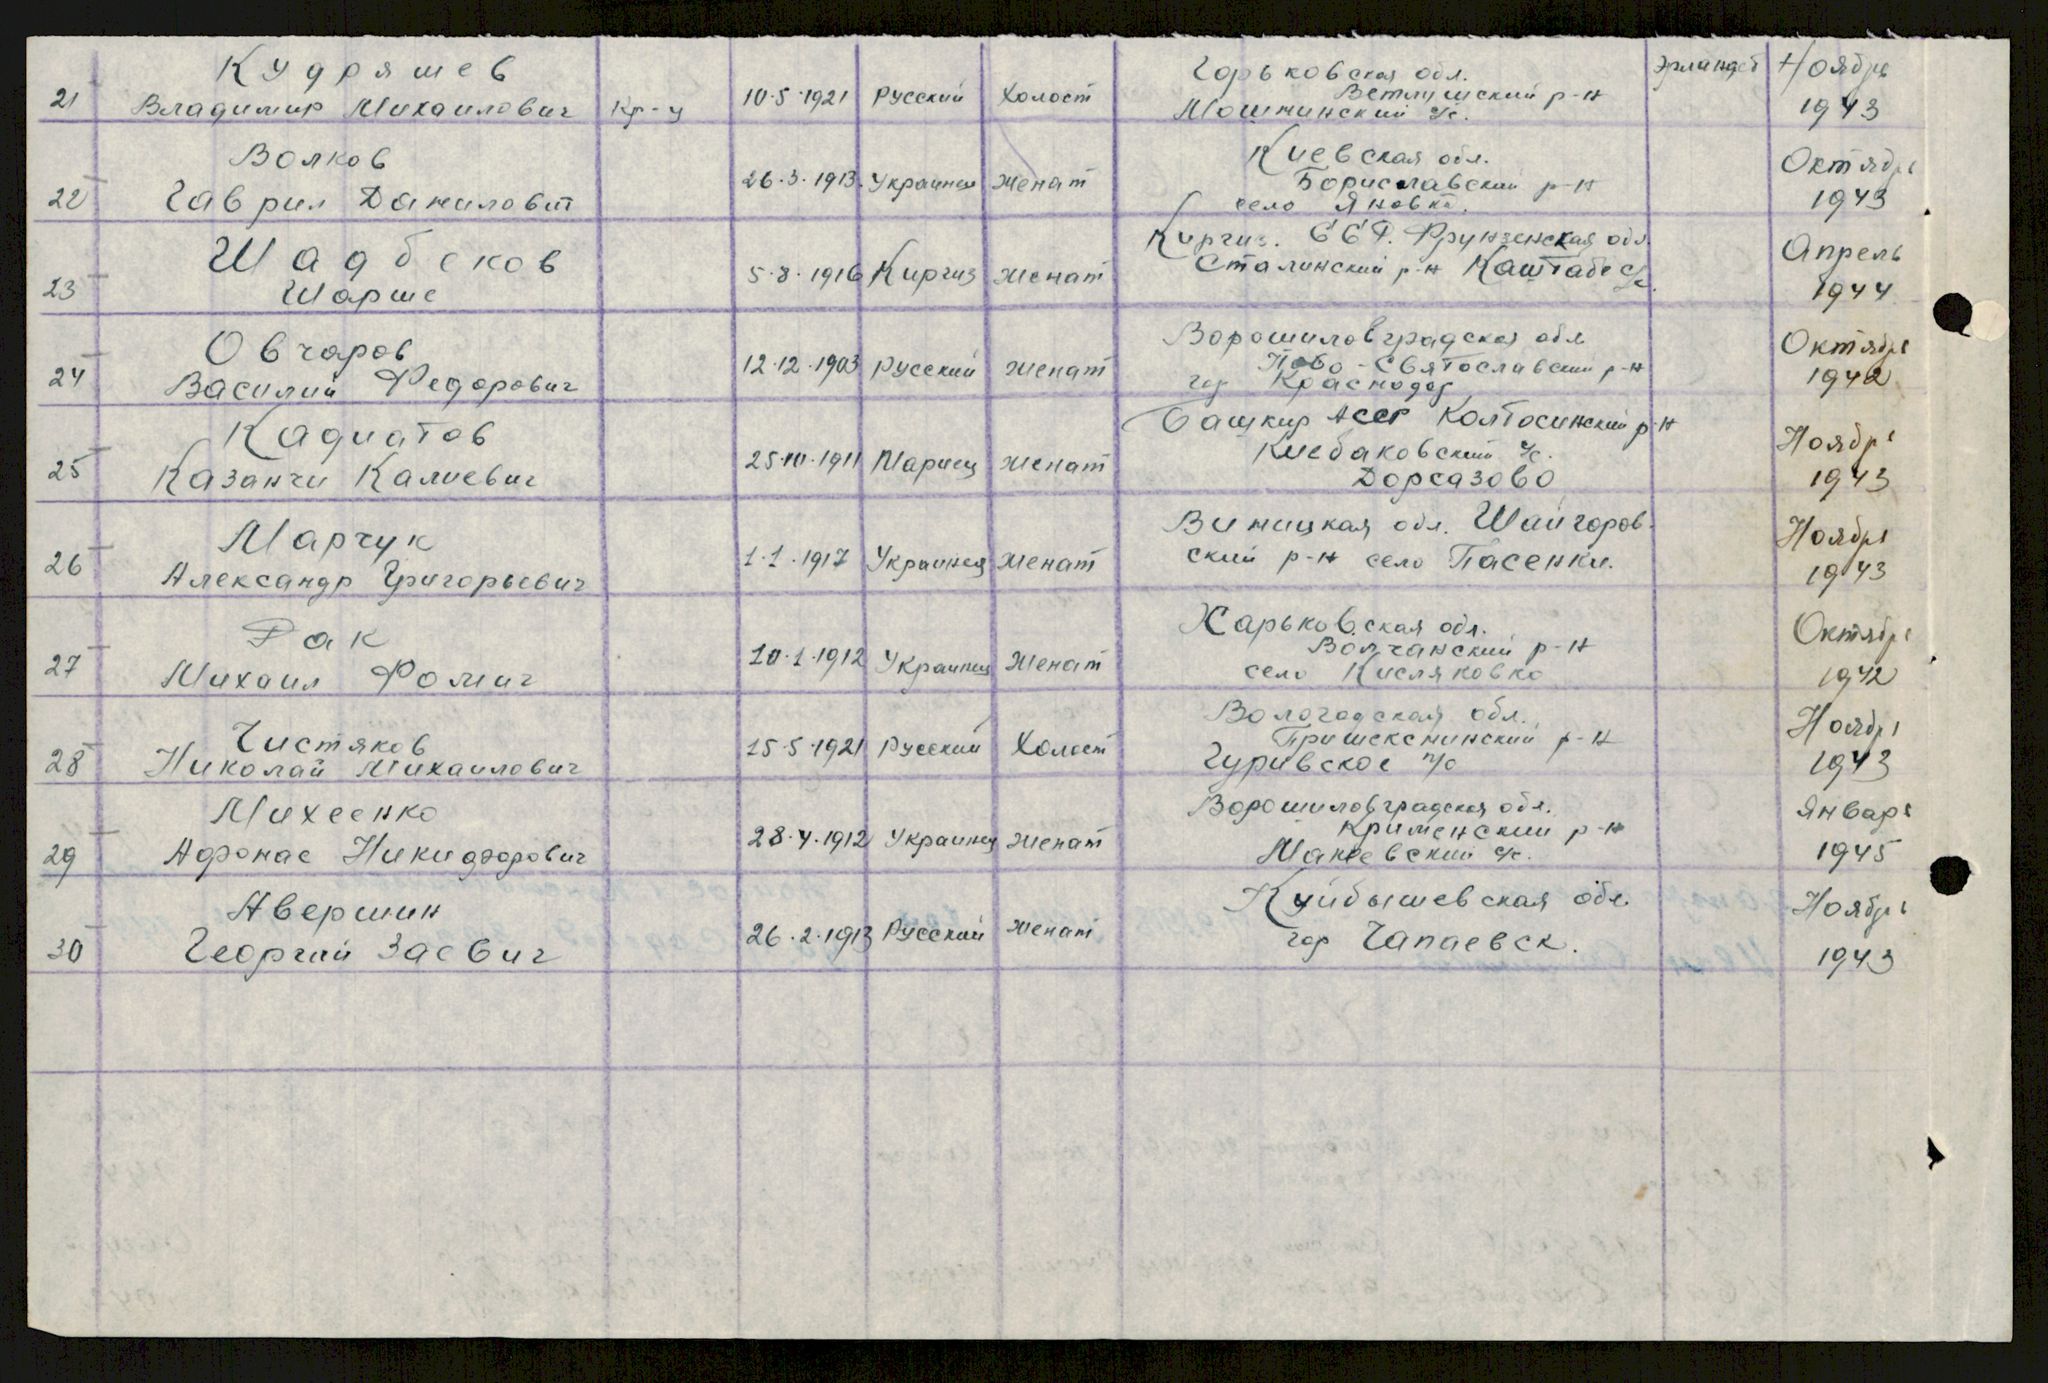 Кудряшев
21 Владимир Михаилович Кр-ц 10.5.1921 Русский Холост Горьковская обл. Ветлушский р-н Мошнинский с/с. Эрландсб Ноябрь 1943
Волков
22 Гаврил Данилович 26.3.1913. Украинец Женат Киевская обл. Бориславский р-н село Яновка. Октябрь 1943
Шадбеков
23 Шарше 5.8.1916 Киргиз Женат Киргиз. ССР. Фрунзенская обл. Сталинский р-н Каштабе с/с. Апрель 1944
Овчаров
24 Василий Федорович 12.12.1903 Русский Женат Ворошиловградская обл Ново-Святославский р-н гор Краснодар Октябрь 1942
Кадиатов
25 Казанчи Калиевич 25.10.1911 Мариец Женат Башкир АССР Колтосинский р-н Киебаковский с/с. Дорсазово Ноябрь 1943
Марчук
26 Александр Григорьевич 1.1.1917 Украинец Женат Виницкая обл. Шайгоров-
ский р-н село Пасенки. Ноябрь 1943
Рак
27 Михаил Фомич 10.1.1912 Украинец Женат Харьковская обл. Волчанский р-н село Кисляковко Октябрь 1942
Чистяков
28 Николай Михаилович 15.5.1921 Русский Холост Вологодская обл. Пришекснинский р-н Гуривское п/о Ноябрь 1943
Михеенко
29 Афонас Никифорович 28.4.1912 Украинец Женат Ворошиловградская обл. Кременский р-н Макеевский с/с. Январь 1945
Авершин
30 Георгий Заевич 26.2.1913 Русский Женат Куйбышевская обл. гор Чапаевск. Ноябрь 1943